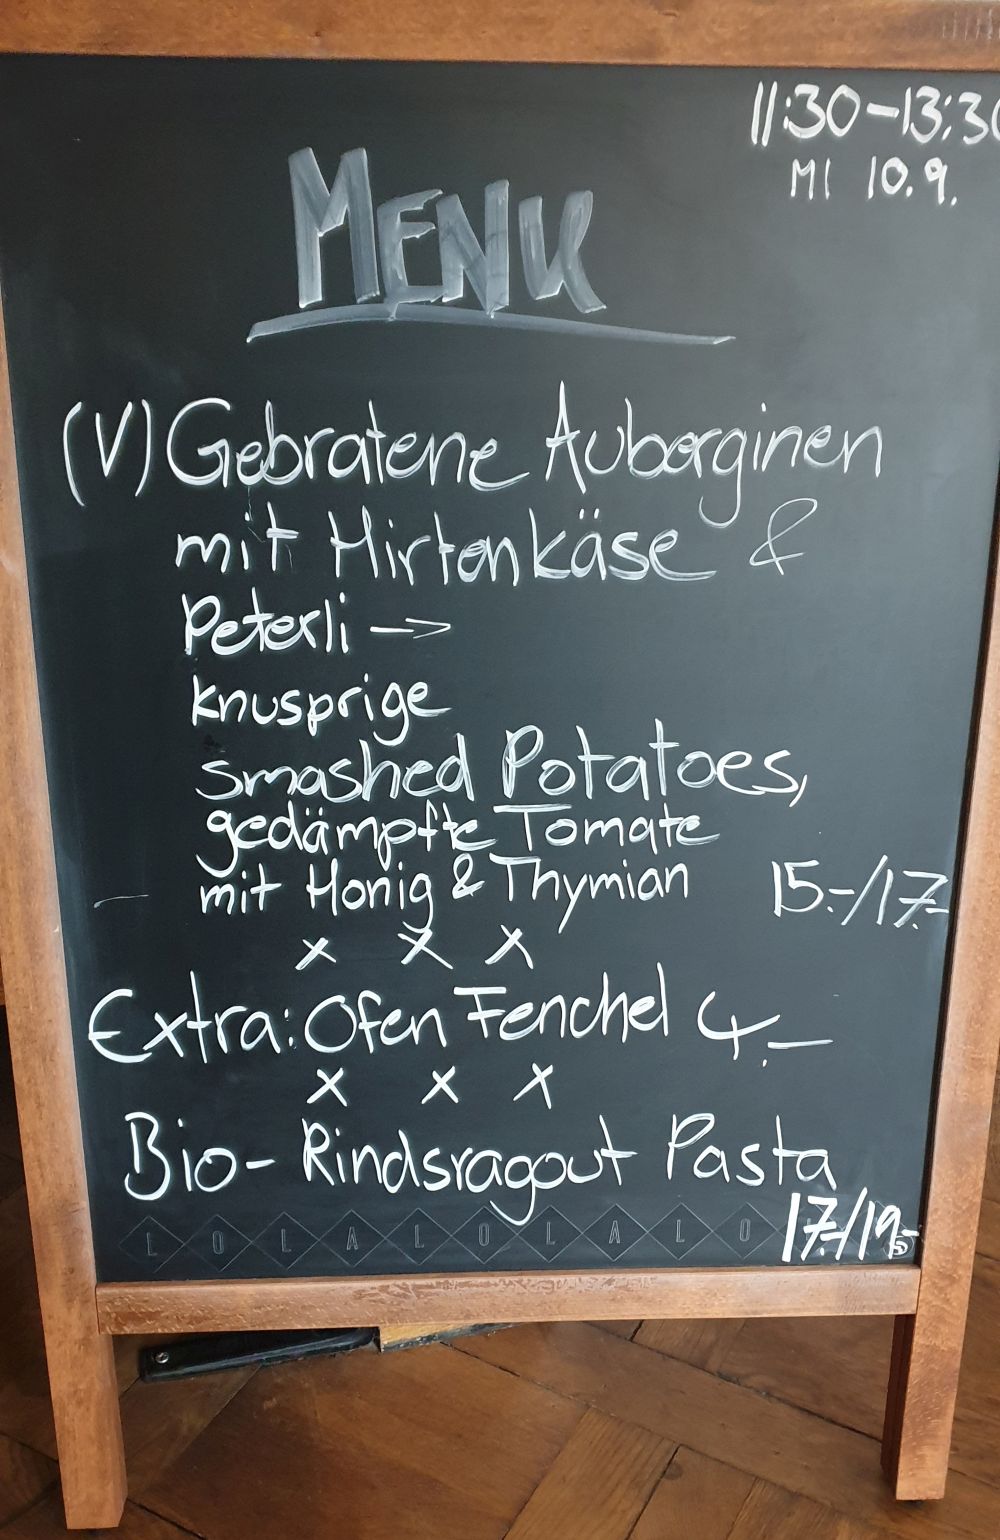 11:30-13:30
MI 10.9.
MENU
(V) Gebratene Auberginen
mit Hirtenkäse &
Peterli →
knusprige
smashed Potatoes,
gedämpfte Tomate
mit Honig & Thymian 15.-/17.-
x x x
Extra: Ofen Fenchel 4.-
x x x
Bio-Rindsragout Pasta
17.-/19.-
LOLALOLALO